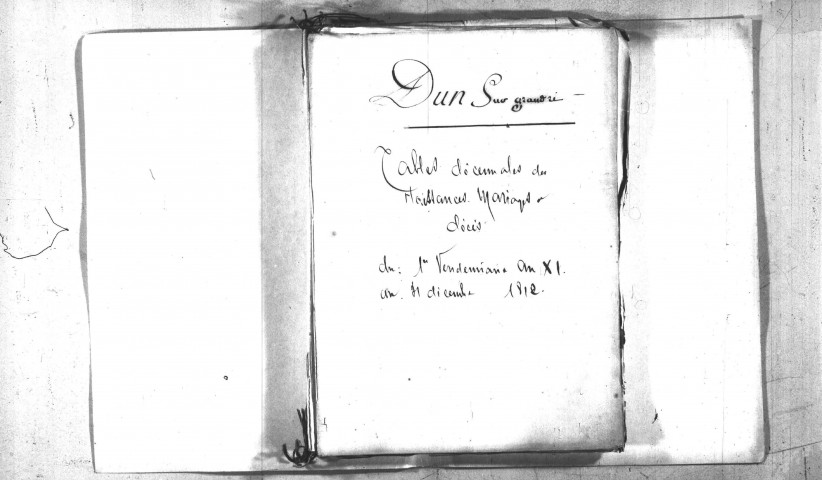 Dun Sur grandri
Tables décennales des
Naissances Mariages &
décès
du: 1er Vendemiaire An XI.
au. 31 décembre 1812.